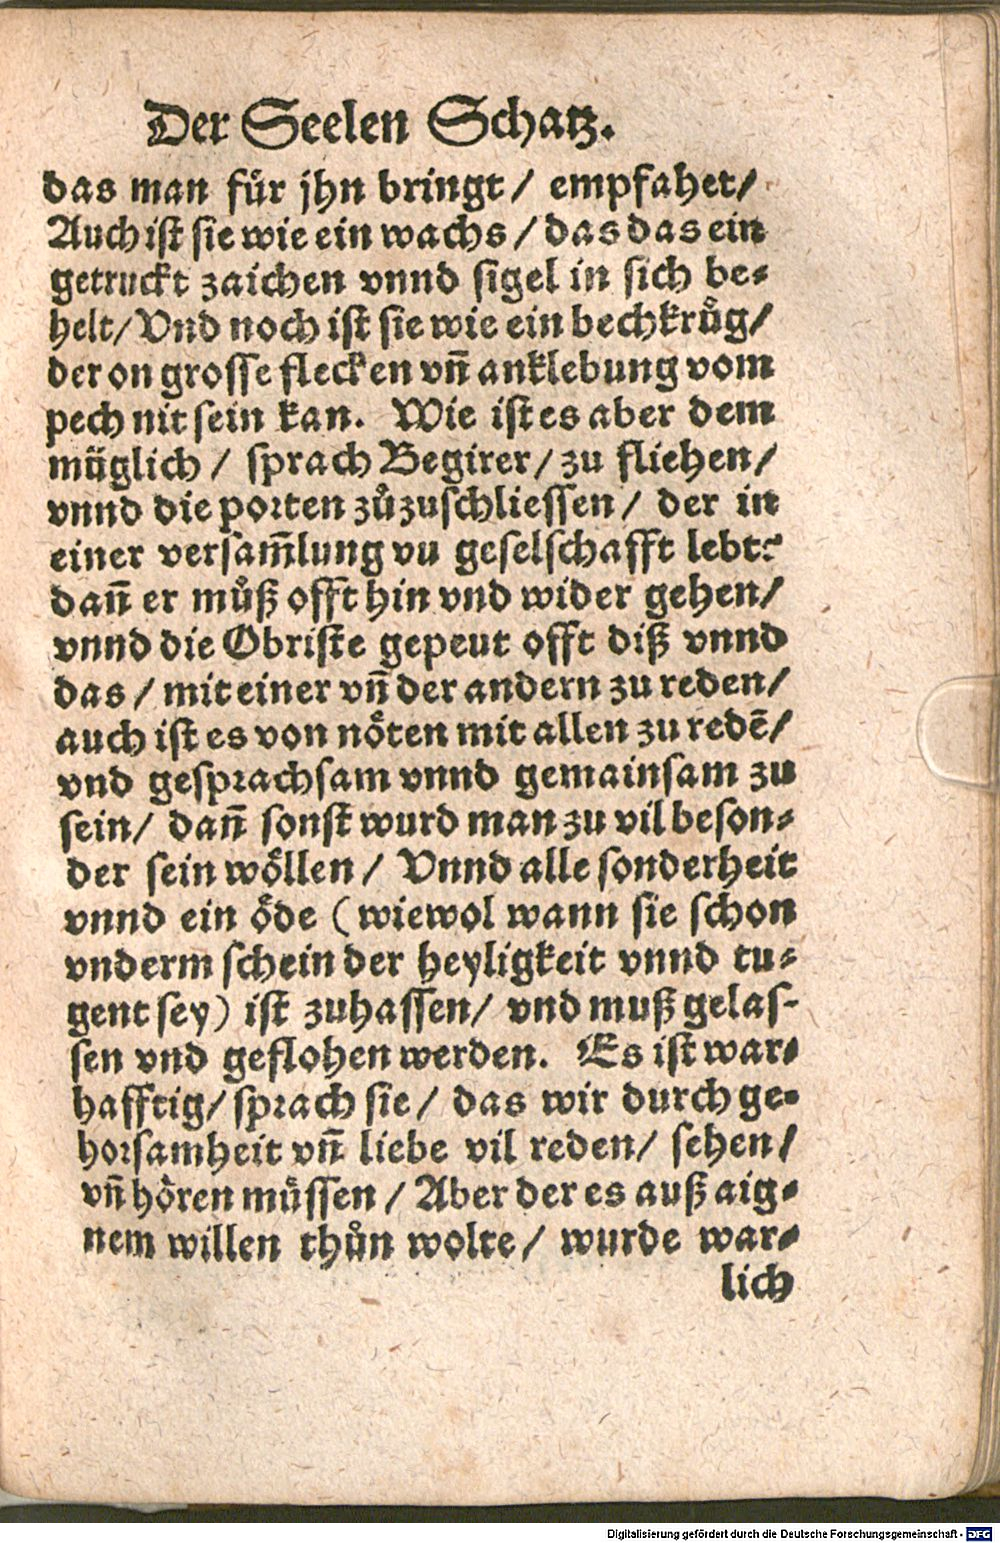 Der Seelen Schatz.
das man für jhn bringt/ empfahet/
Auch ist sie wie ein wachs/ das das ein
getruckt zaichen vnnd sigel in sich be-
helt/ Vnd noch ist sie wie ein bechkrůg/
der on grosse flecken vñ anklebung vom
pech nit sein kan. Wie ist es aber dem
müglich/ sprach Begirer/ zu fliehen/
vnnd die porten zůzuschliessen/ der in
einer versam̃lung vu geselschafft lebt?
dañ er můß offt hin vnd wider gehen/
vnnd die Obriste gepeut offt diß vnnd
das/ mit einer vñ der andern zu reden/
auch ist es von nöten mit allen zu redē/
vnd gesprachsam vnnd gemainsam zu
sein/ dañ sonst wurd man zu vil beson-
der sein wöllen/ Vnnd alle sonderheit
vnnd ein öde (wiewol wann sie schon
vnderm schein der heyligkeit vnnd tu-
gent sey) ist zuhassen/ vnd muß gelas-
sen vnd geflohen werden. Es ist war-
hafftig/ sprach sie/ das wir durch ge-
horsamheit vñ liebe vil reden/ sehen/
vñ hören müssen/ Aber der es auß aig-
nem willen thůn wolte/ wurde war-
lich
Digitalisierung gefördert durch die Deutsche Forschungsgemeinschaft - DFG